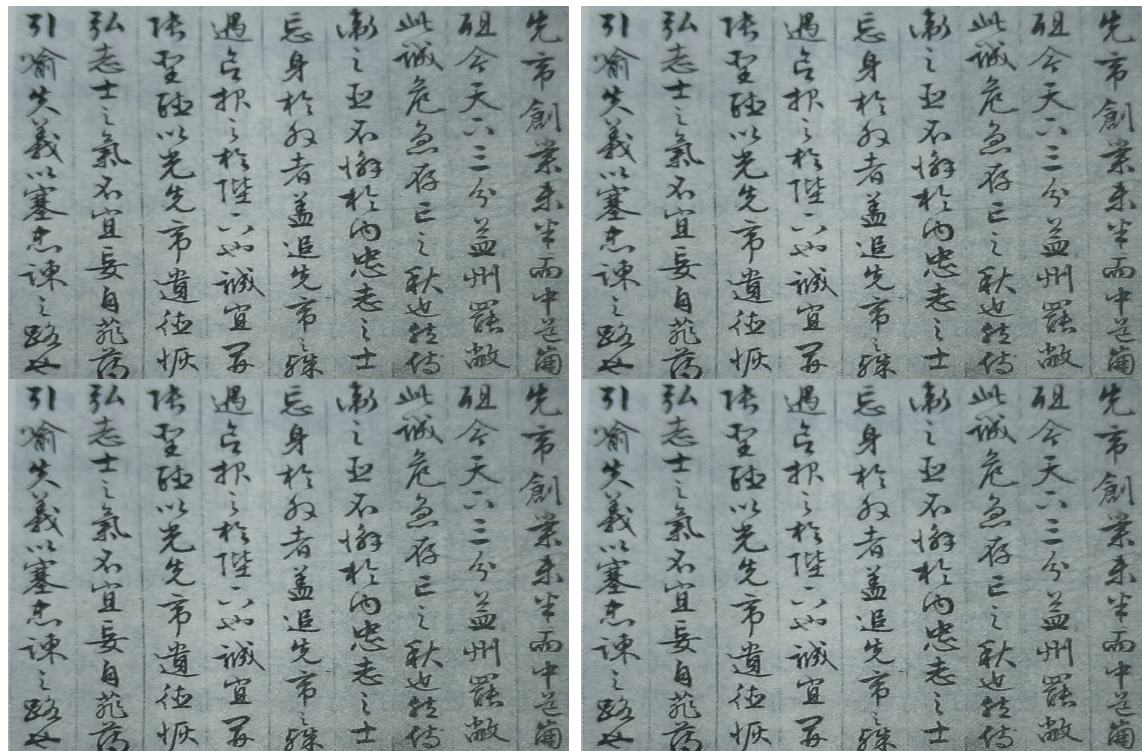 先帝創業未半而中道崩
殂今天下三分益州罷敝
此誠危急存亡之秋也然侍
衛之臣不懈於內忠志之士
忘身於外者蓋追先帝之殊
遇欲報之於陛下也誠宜開
張聖聽以光先帝遺德恢
弘志士之氣不宜妄自菲薄
引喻失義以塞忠諫之路也
先帝創業未半而中道崩
殂今天下三分益州罷敝
此誠危急存亡之秋也然侍
衛之臣不懈於內忠志之士
忘身於外者蓋追先帝之殊
遇欲報之於陛下也誠宜開
張聖聽以光先帝遺德恢
弘志士之氣不宜妄自菲薄
引喻失義以塞忠諫之路也
先帝創業未半而中道崩
殂今天下三分益州罷敝
此誠危急存亡之秋也然侍
衛之臣不懈於內忠志之士
忘身於外者蓋追先帝之殊
遇欲報之於陛下也誠宜開
張聖聽以光先帝遺德恢
弘志士之氣不宜妄自菲薄
引喻失義以塞忠諫之路也
先帝創業未半而中道崩
殂今天下三分益州罷敝
此誠危急存亡之秋也然侍
衛之臣不懈於內忠志之士
忘身於外者蓋追先帝之殊
遇欲報之於陛下也誠宜開
張聖聽以光先帝遺德恢
弘志士之氣不宜妄自菲薄
引喻失義以塞忠諫之路也